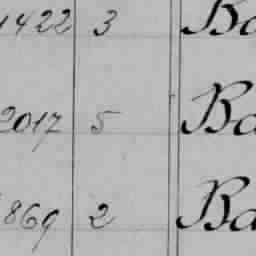 1422 3 Ba
2017 5 Ba
869 2 Ba